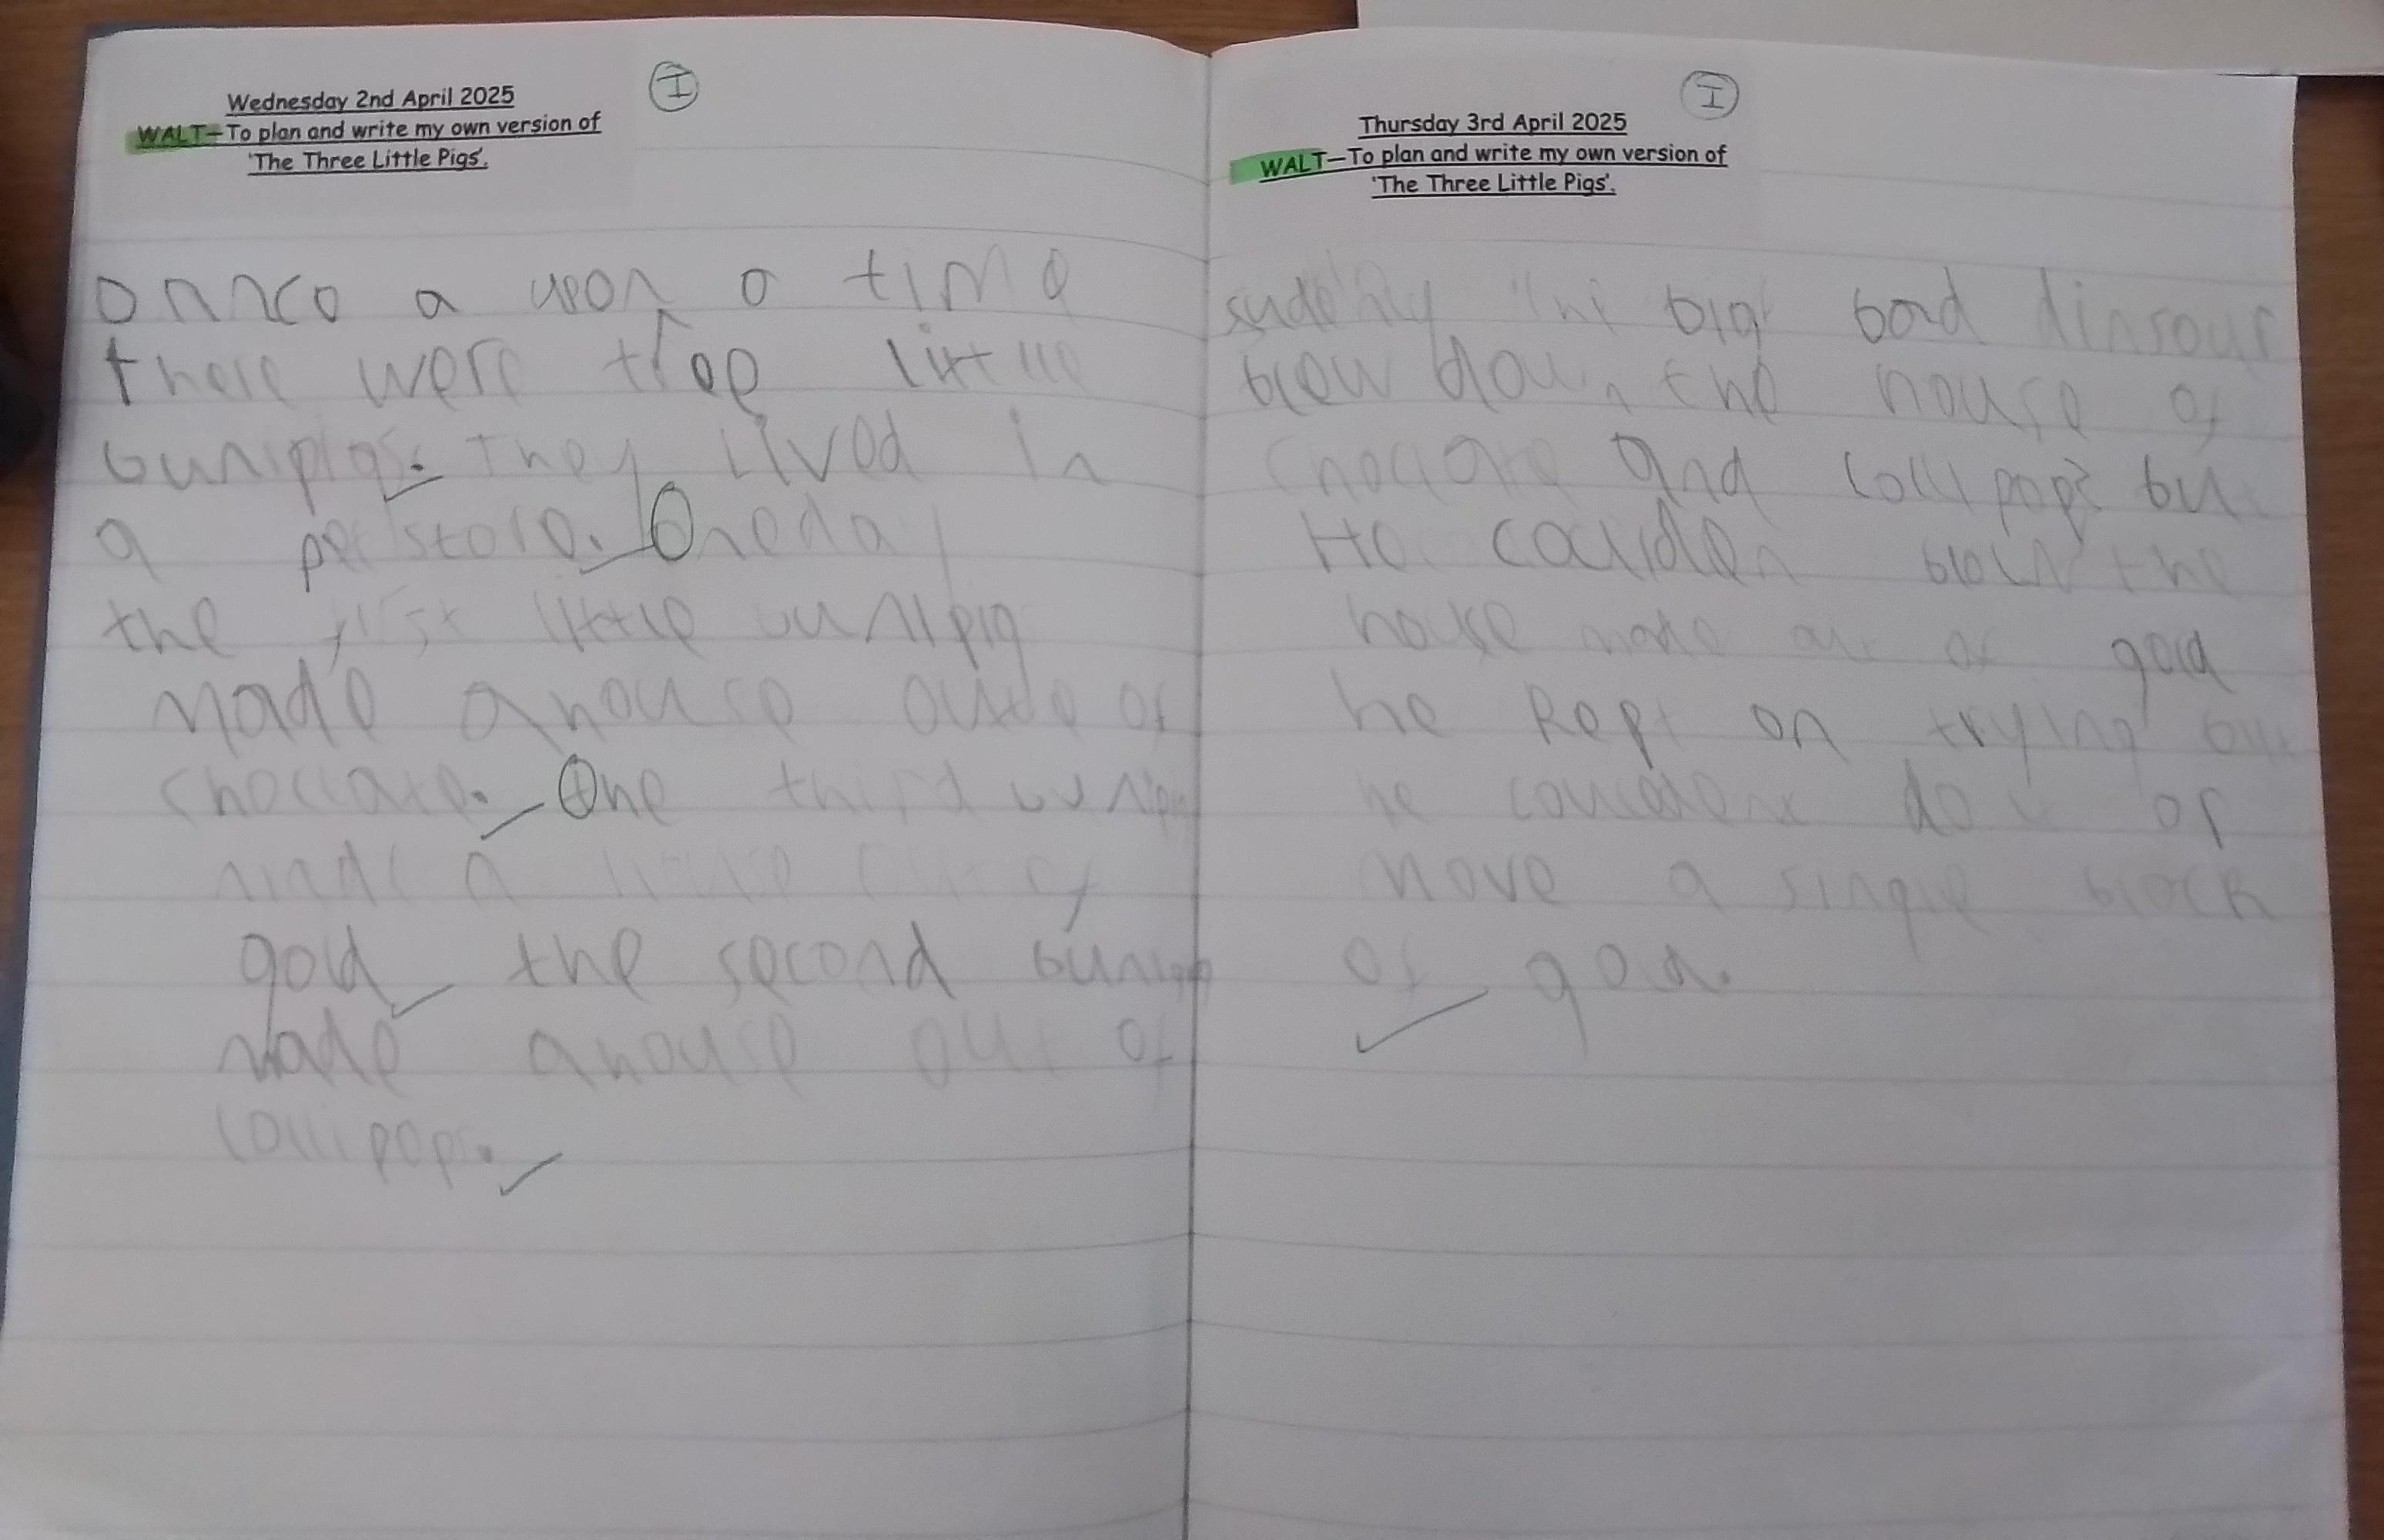 I
Wednesday 2nd April 2025
WALT—To plan and write my own version of
'The Three Little Pigs'.
onnco a upon a time
there were tree little
bunipigs. They lived in
a pet store. One day
the first little bunipig
made a house oute of
choclate. One third bunipig
made a house out of
gold the second bunipig
made a house out of
lollipops.
I
Thursday 3rd April 2025
WALT—To plan and write my own version of
'The Three Little Pigs'.
sudenly the big bad dinsour
blow down the house of
choclate and lollipops but
He coulden blow the
house made out of gold
he kept on trying but
he couldent do it or
move a single block
of gold.